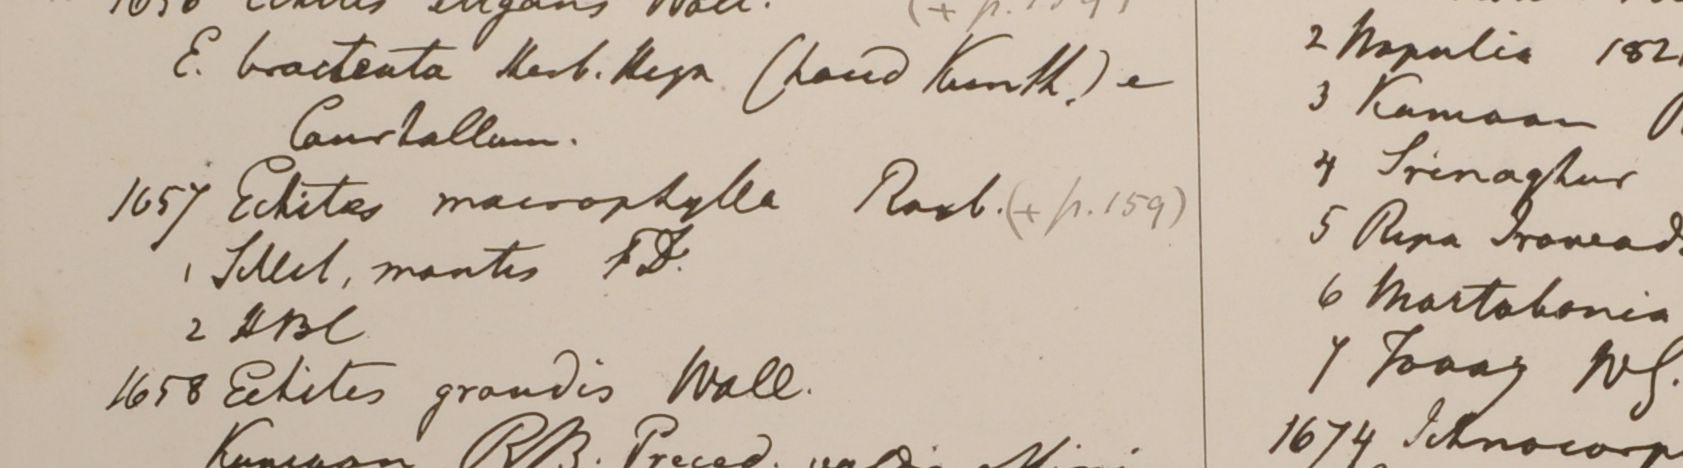 1656 Echites elegans Wall. (+ p. 159)
E. bracteata Herb. Heyn (haud Kunth.) e
Courtallum.
1657 Echites macrophylla Roxb. (+ p. 159)
1 Sillet, montis F D.
2 HBC
1658 Echites grandis Wall.
Kumaon RB. Preced.
2 Napalia 182
3 Kamaon
4 Srinaghur
5 Ripa Irawad
6 Martabania
7 Tavoy WG.
1674 Ichnocarp